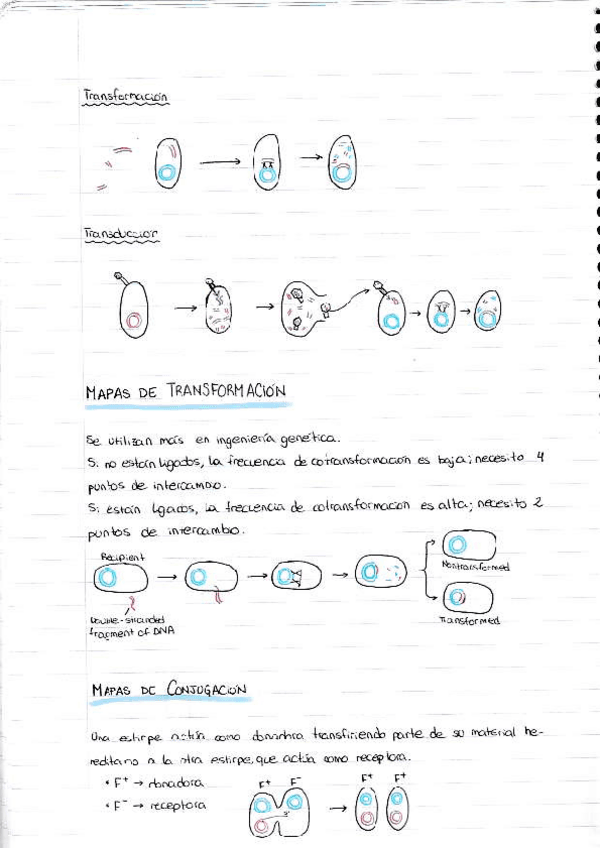 Transformación
Transducción
MAPAS DE TRANSFORMACIÓN
Se utilizan más en ingeniería genética.
Si no están ligados, la frecuencia de cotransformación es baja; necesito 4
puntos de intercambio.
Si están ligados, la frecuencia de cotransformación es alta; necesito 2
puntos de intercambio.
Recipient
Nontransformed
Double-stranded
fragment of DNA
Transformed
MAPAS DE CONJUGACIÓN
Una estirpe actúa como donadora transfiriendo parte de su material he-
reditario a la otra estirpe, que actúa como receptora.
• F+ → donadora
• F- → receptora
F+ F- F+ F+